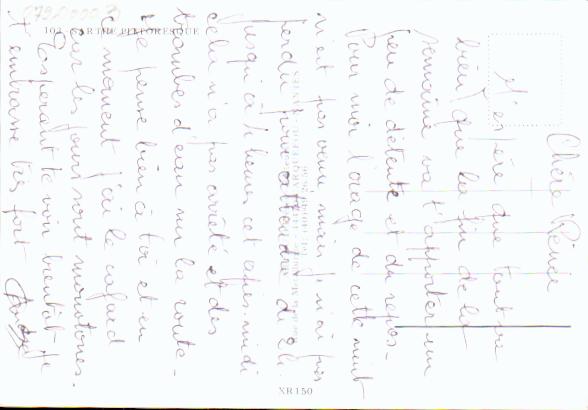 102 - SARTHE PITTORESQUE
Chère Renée
J'espère que tout va
bien, que la fin de la
semaine va t'apporter un
peu de détente et du repos.
Pour moi l'orage de cette nuit
m'est pas venu mais j'ai pas
perdu pour attendre de
jusqu'à heures cet après-midi
cela n'a pas arrêté et des
trombes d'eau sur la route.
Je pense bien à toi et en
ce moment j'ai le cafard
car les jours sont monotones.
Espérant te voir bientôt je
t'embrasse très fort
XR 150